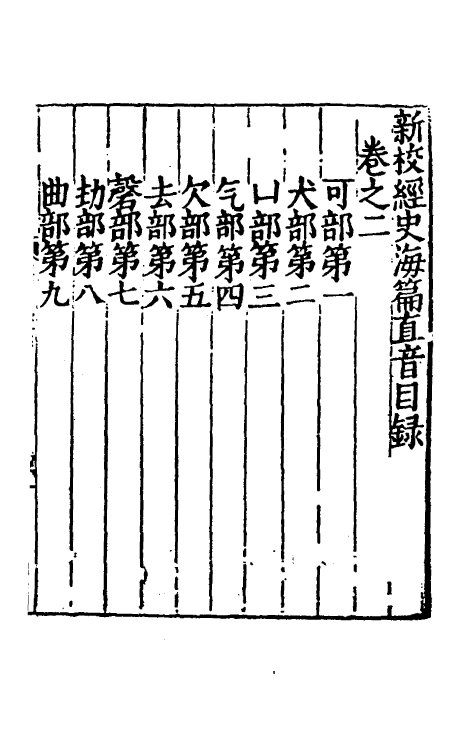 新校經史海篇直音目録
卷之二
可部第一
犬部第二
凵部第三
气部第四
欠部第五
去部第六
磬部第七
劫部第八
曲部第九